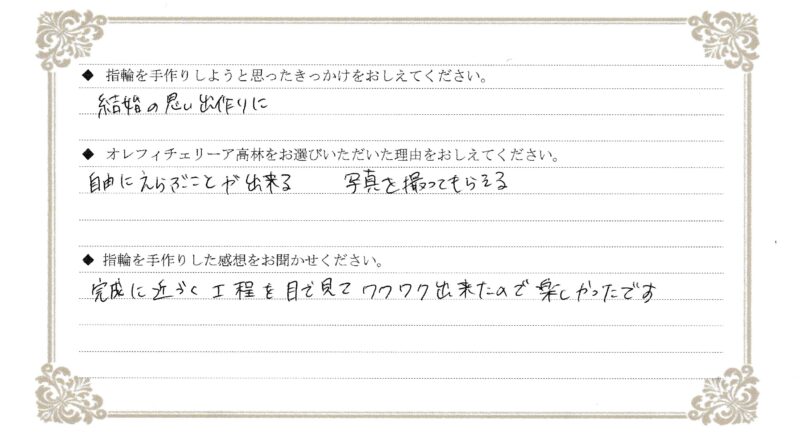 ◆ 指輪を手作りしようと思ったきっかけをおしえてください。
結婚の思い出作りに
◆ オレフィチェリーア高林をお選びいただいた理由をおしえてください。
自由にえらぶことが出来る　　写真を撮ってもらえる
◆ 指輪を手作りした感想をお聞かせください。
完成に近づく工程を目で見てワクワク出来たので楽しかったです